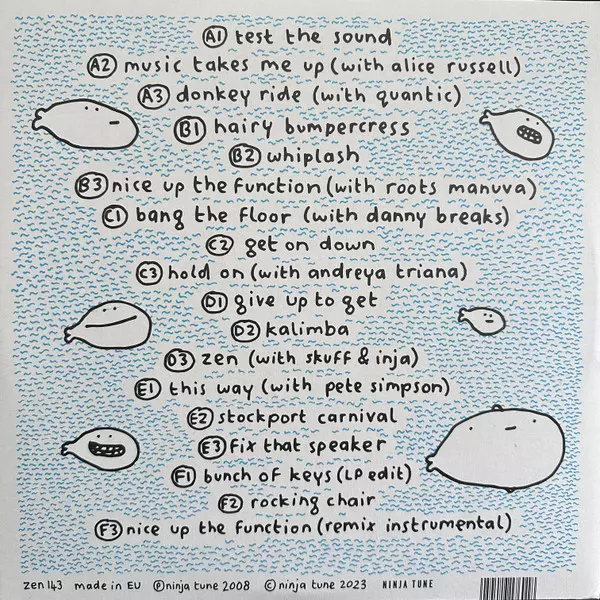 A1 test the sound
A2 music takes me up (with alice russell)
A3 donkey ride (with quantic)
B1 hairy bumpercress
B2 whiplash
B3 nice up the function (with roots manuva)
C1 bang the floor (with danny breaks)
C2 get on down
C3 hold on (with andreya triana)
D1 give up to get
D2 kalimba
D3 zen (with skuff & inja)
E1 this way (with pete simpson)
E2 stockport carnival
E3 fix that speaker
F1 bunch of keys (LP edit)
F2 rocking chair
F3 nice up the function (remix instrumental)
zen 143 made in EU ℗ ninja tune 2008 © ninja tune 2023 NINJA TUNE